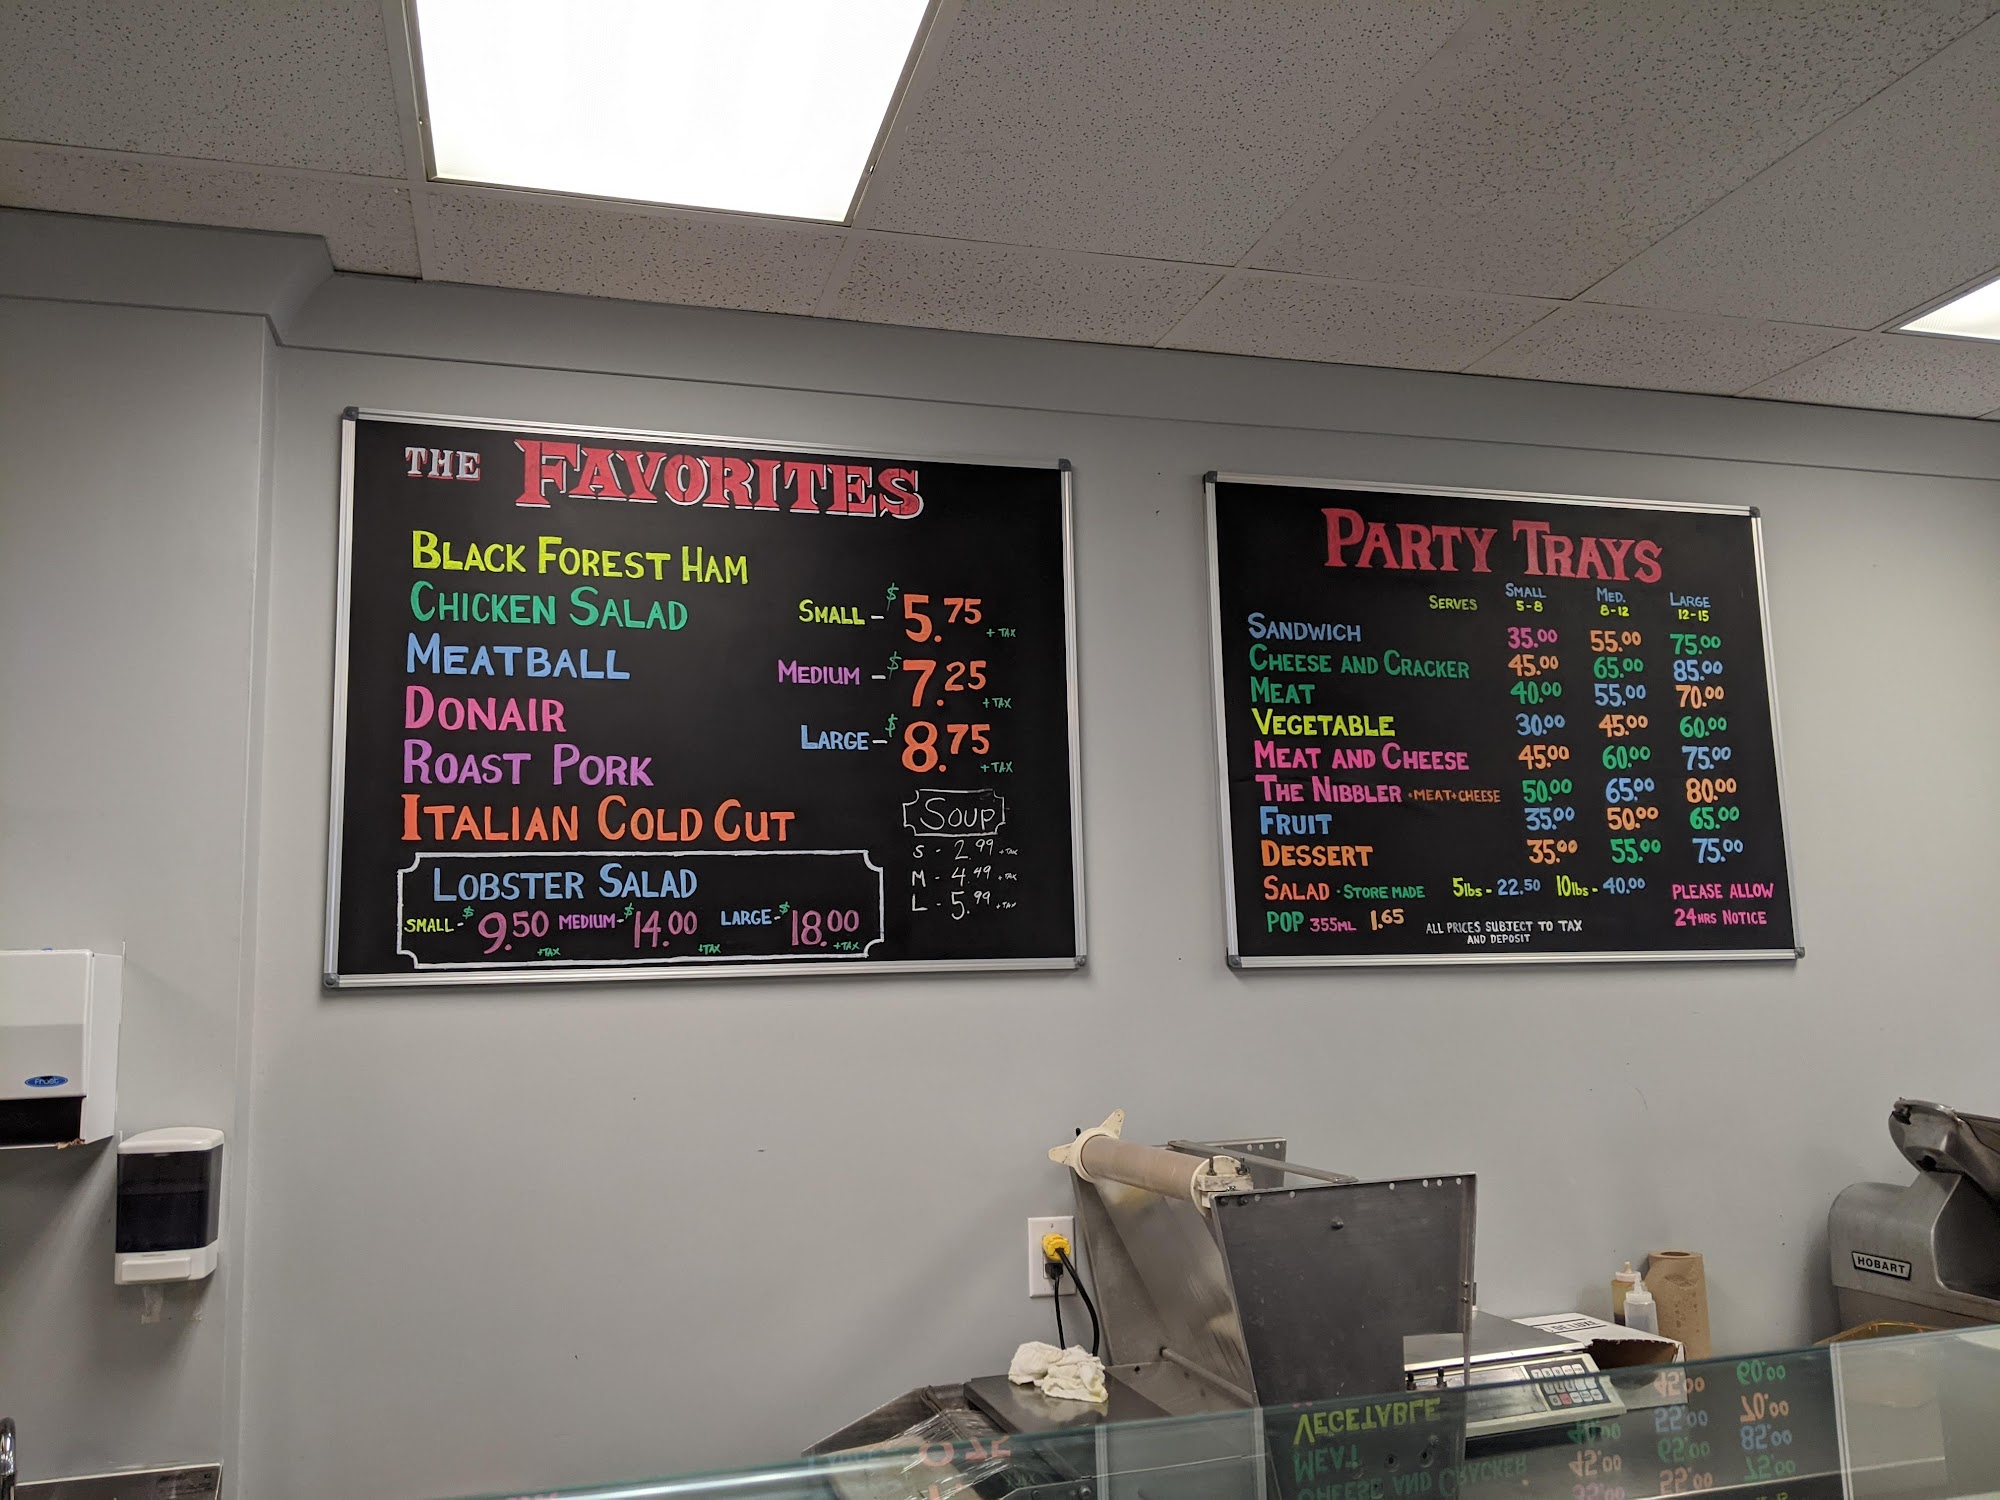 THE FAVORITES
BLACK FOREST HAM
CHICKEN SALAD
MEATBALL
DONAIR
ROAST PORK
ITALIAN COLD CUT
SMALL - $5.75 + TAX
MEDIUM - $7.25 + TAX
LARGE - $8.75 + TAX
SOUP
S - 2.99 + TAX
M - 4.49 + TAX
L - 5.99 + TAX
LOBSTER SALAD
SMALL - $9.50 + TAX MEDIUM - $14.00 + TAX LARGE - $18.00 + TAX
PARTY TRAYS
SMALL MED. LARGE
SERVES 5-8 8-12 12-15
SANDWICH 35.00 55.00 75.00
CHEESE AND CRACKER 45.00 65.00 85.00
MEAT 40.00 55.00 70.00
VEGETABLE 30.00 45.00 60.00
MEAT AND CHEESE 45.00 60.00 75.00
THE NIBBLER · MEAT + CHEESE 50.00 65.00 80.00
FRUIT 35.00 50.00 65.00
DESSERT 35.00 55.00 75.00
SALAD · STORE MADE 5lbs - 22.50 10lbs - 40.00
POP 355ML 1.65
ALL PRICES SUBJECT TO TAX
AND DEPOSIT
PLEASE ALLOW
24 HRS NOTICE
Frost
HOBART